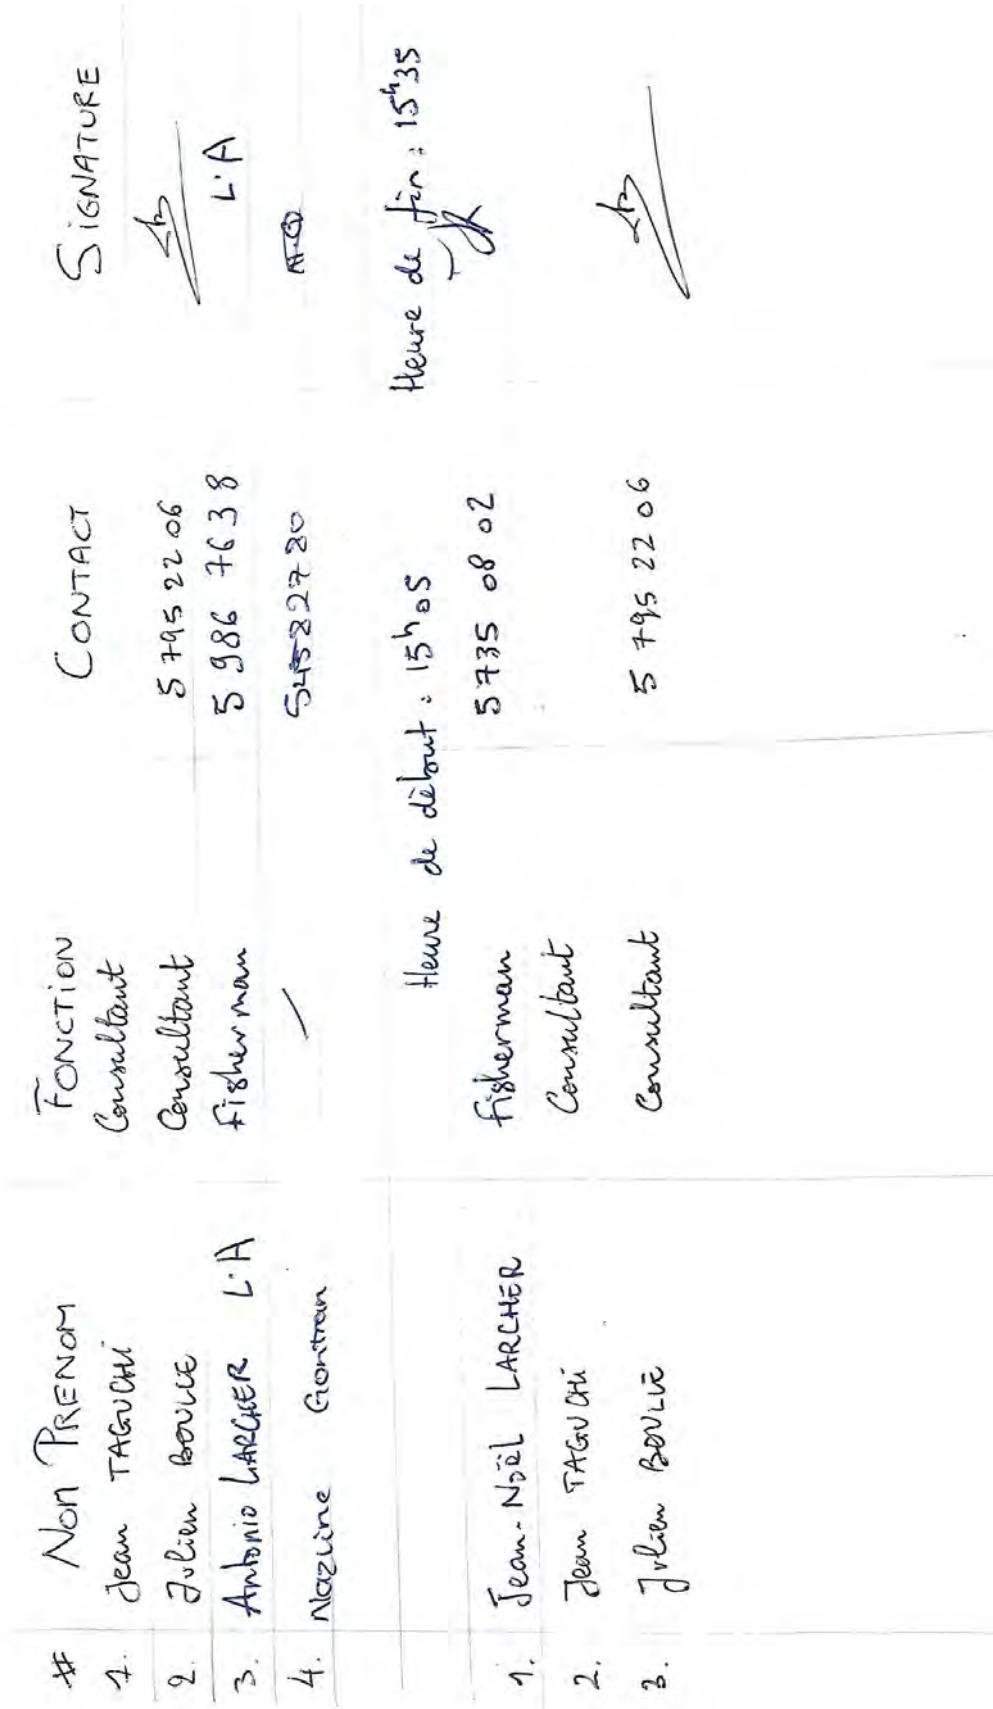 # NOM PRENOM FONCTION CONTACT SIGNATURE
1. Jean TAGUCHI Consultant
2. Julien BOULLE Consultant 5 795 22 06
3. Antonio LARCHER L.A Fisherman 5 986 7638 L.A
4. Nazine Gontran /
Heure de début : 15h05 Heure de fin : 15h35
1. Jean-Noël LARCHER Fisherman 5735 08 02
2. Jean TAGUCHI Consultant
3. Julien BOULLE Consultant 5 795 22 06